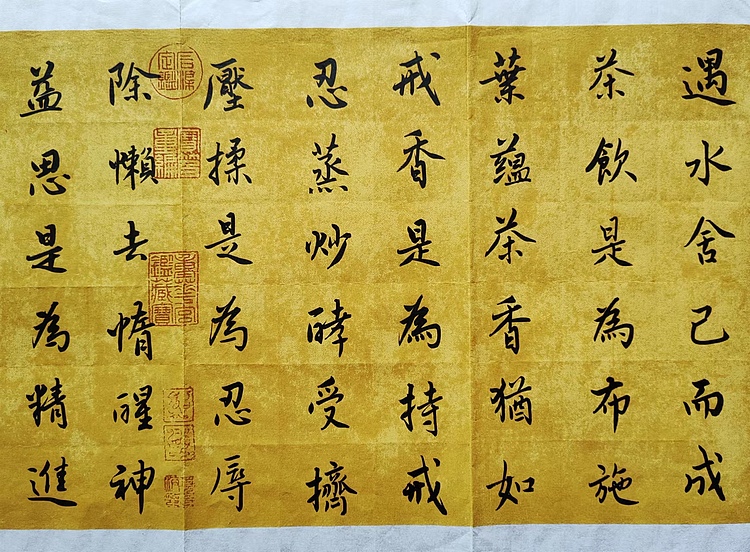 遇水舍己而成
茶飲是為布施
葉蘊茶香猶如
戒香是為持戒
忍蒸炒酵受擠
壓揉是為忍辱
除懶去惰醒神
益思是為精進